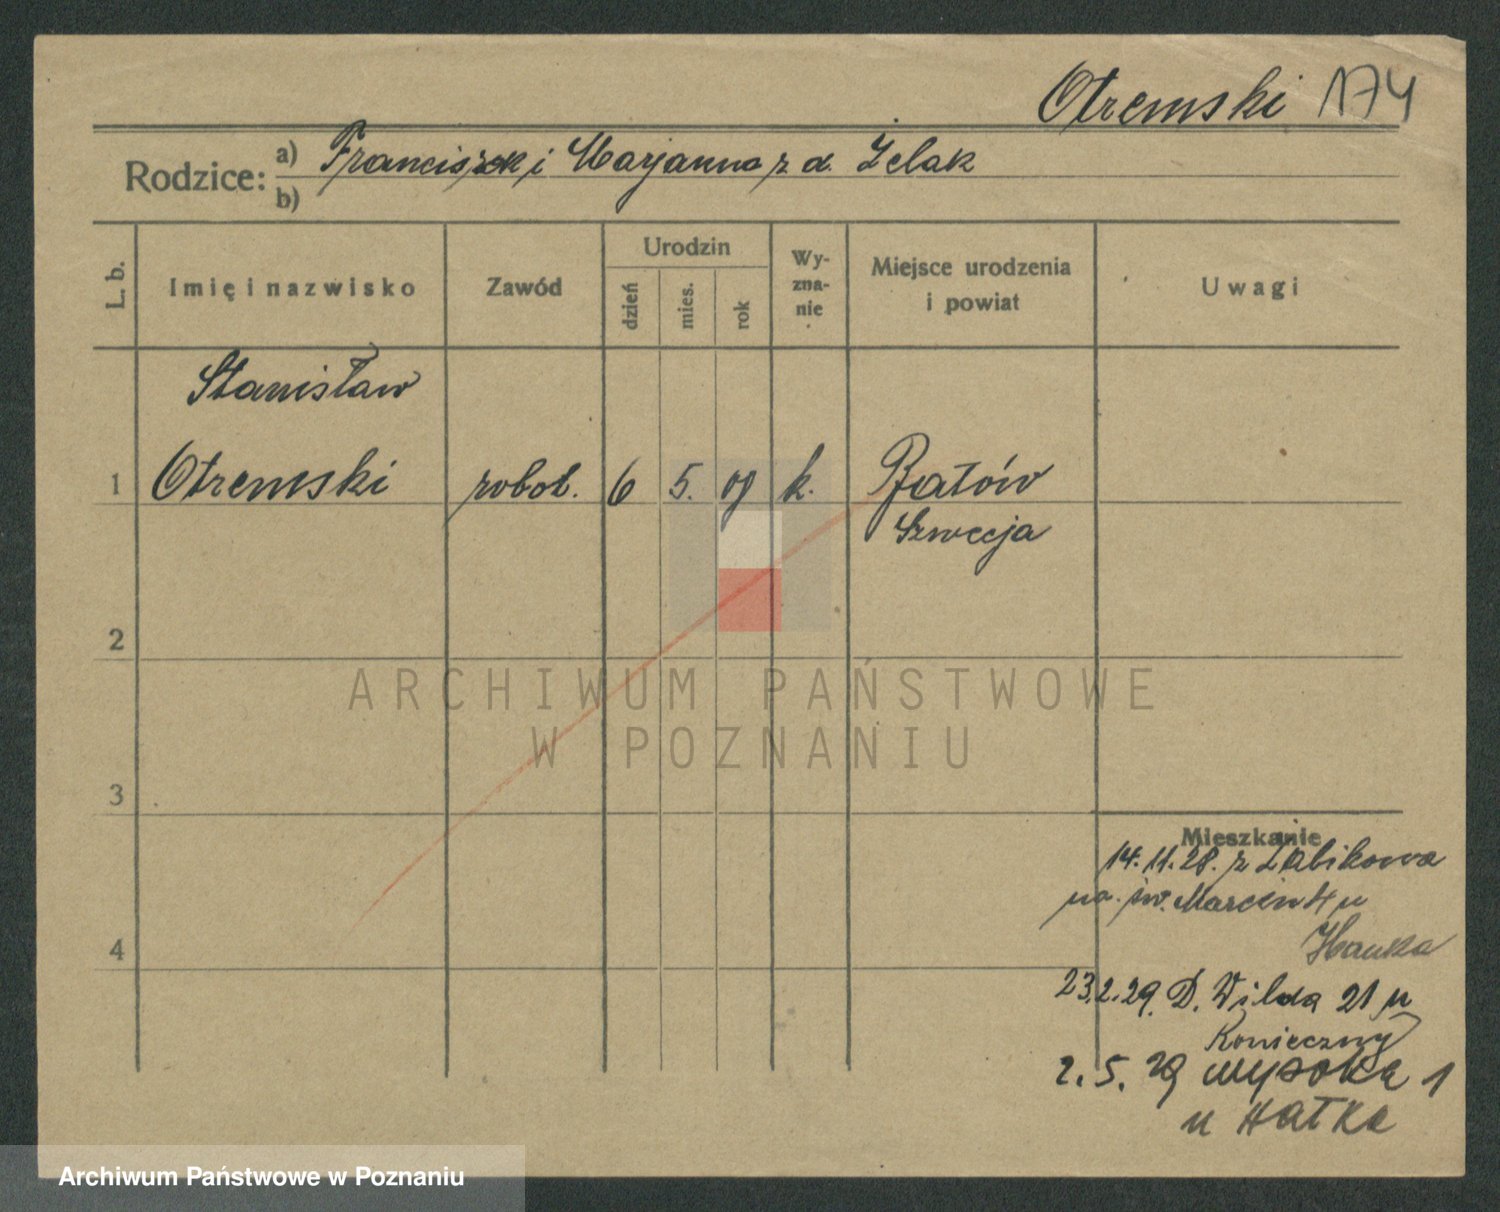 Otremski 174
Rodzice: a) Franciszek i Marjanna z d. Żelak
b)
L. b.
Imię i nazwisko
Zawód
Urodzin
dzień
mies.
rok
Wy-
zna-
nie
Miejsce urodzenia
i powiat
Uwagi
Stanisław
1 Otremski robot. 6 5. 09 k.
Szwecja
2
ARCHIWUM PAŃSTWOWE
W POZNANIU
3
Mieszkanie
14.11.28. z Żabikowa
na św. Marcin 4 u
Hauka
4
23.2.29. D. Wilda 21 u
Konieczny
2.5.29 Wysoka 1
u Hałka
Archiwum Państwowe w Poznaniu